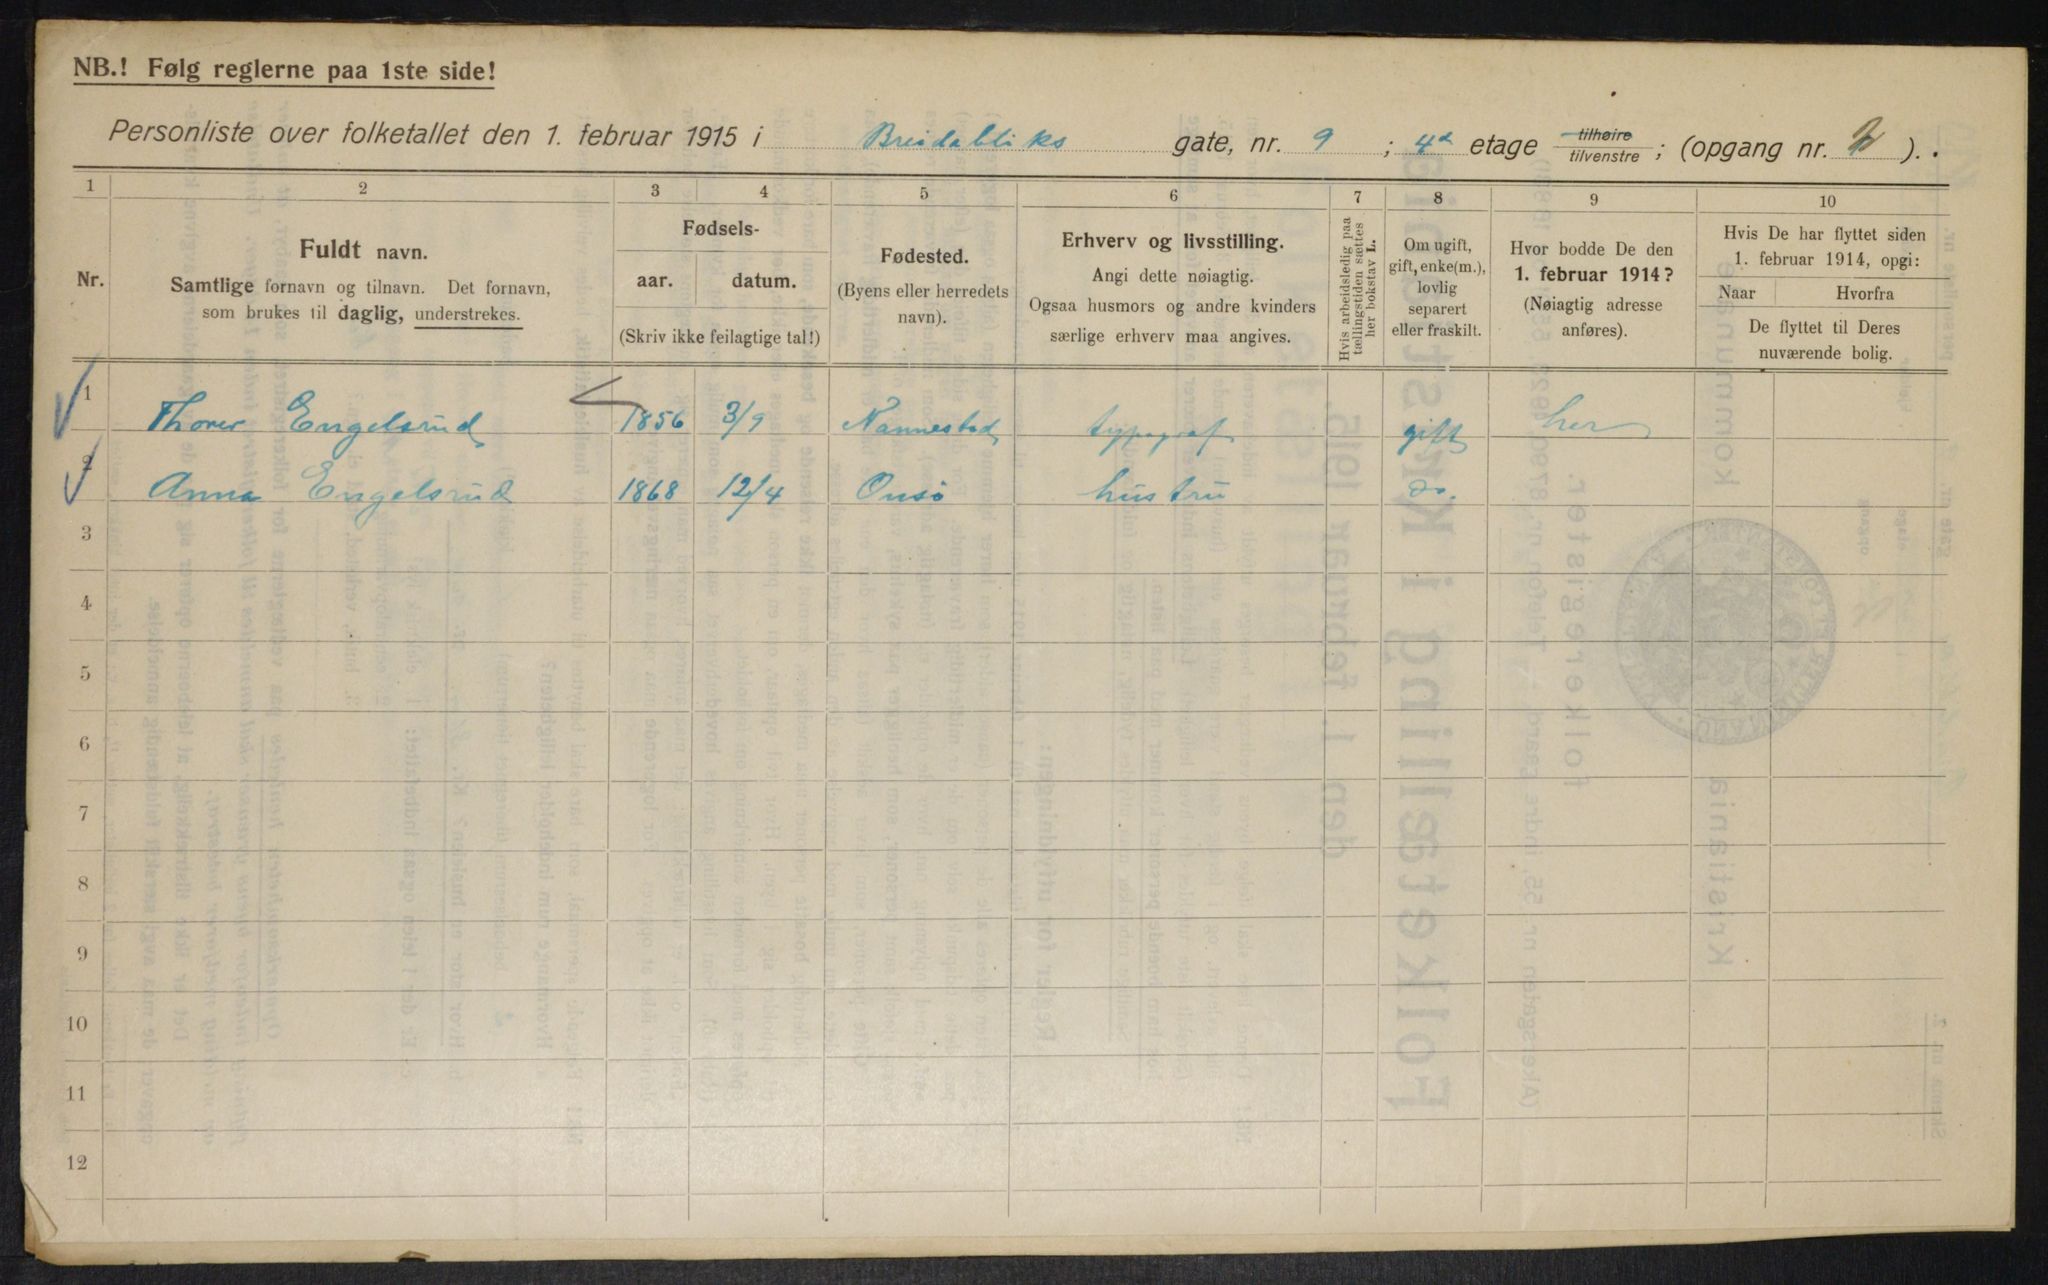 NB.! Følg reglerne paa 1ste side!
Personliste over folketallet den 1. februar 1915 i Breidabliks gate, nr. 9 ; 4d etage tilhøire / tilvenstre ; (opgang nr. ).
1 2 3 4 5 6 7 8 9 10
Nr.
Fuldt navn.
Samtlige fornavn og tilnavn. Det fornavn,
som brukes til daglig, understrekes.
Fødsels-
aar. datum.
(Skriv ikke feilagtige tal!)
Fødested.
(Byens eller herredets
navn).
Erhverv og livsstilling.
Angi dette nøiagtig.
Ogsaa husmors og andre kvinders
særlige erhverv maa angives.
Hvis arbeidsledig paa
tællingstiden sættes
her bokstav L.
Om ugift,
gift, enke(m.),
lovlig
separert
eller fraskilt.
Hvor bodde De den
1. februar 1914?
(Nøiagtig adresse
anføres).
Hvis De har flyttet siden
1. februar 1914, opgi:
Naar Hvorfra
De flyttet til Deres
nuværende bolig.
1 Thorer Engelsrud 1856 3/9 Nannestad typograf gift her
2 Anna Engelsrud 1868 12/4 Onsö hustru do.
3
4
5
6
7
8
9
10
11
12